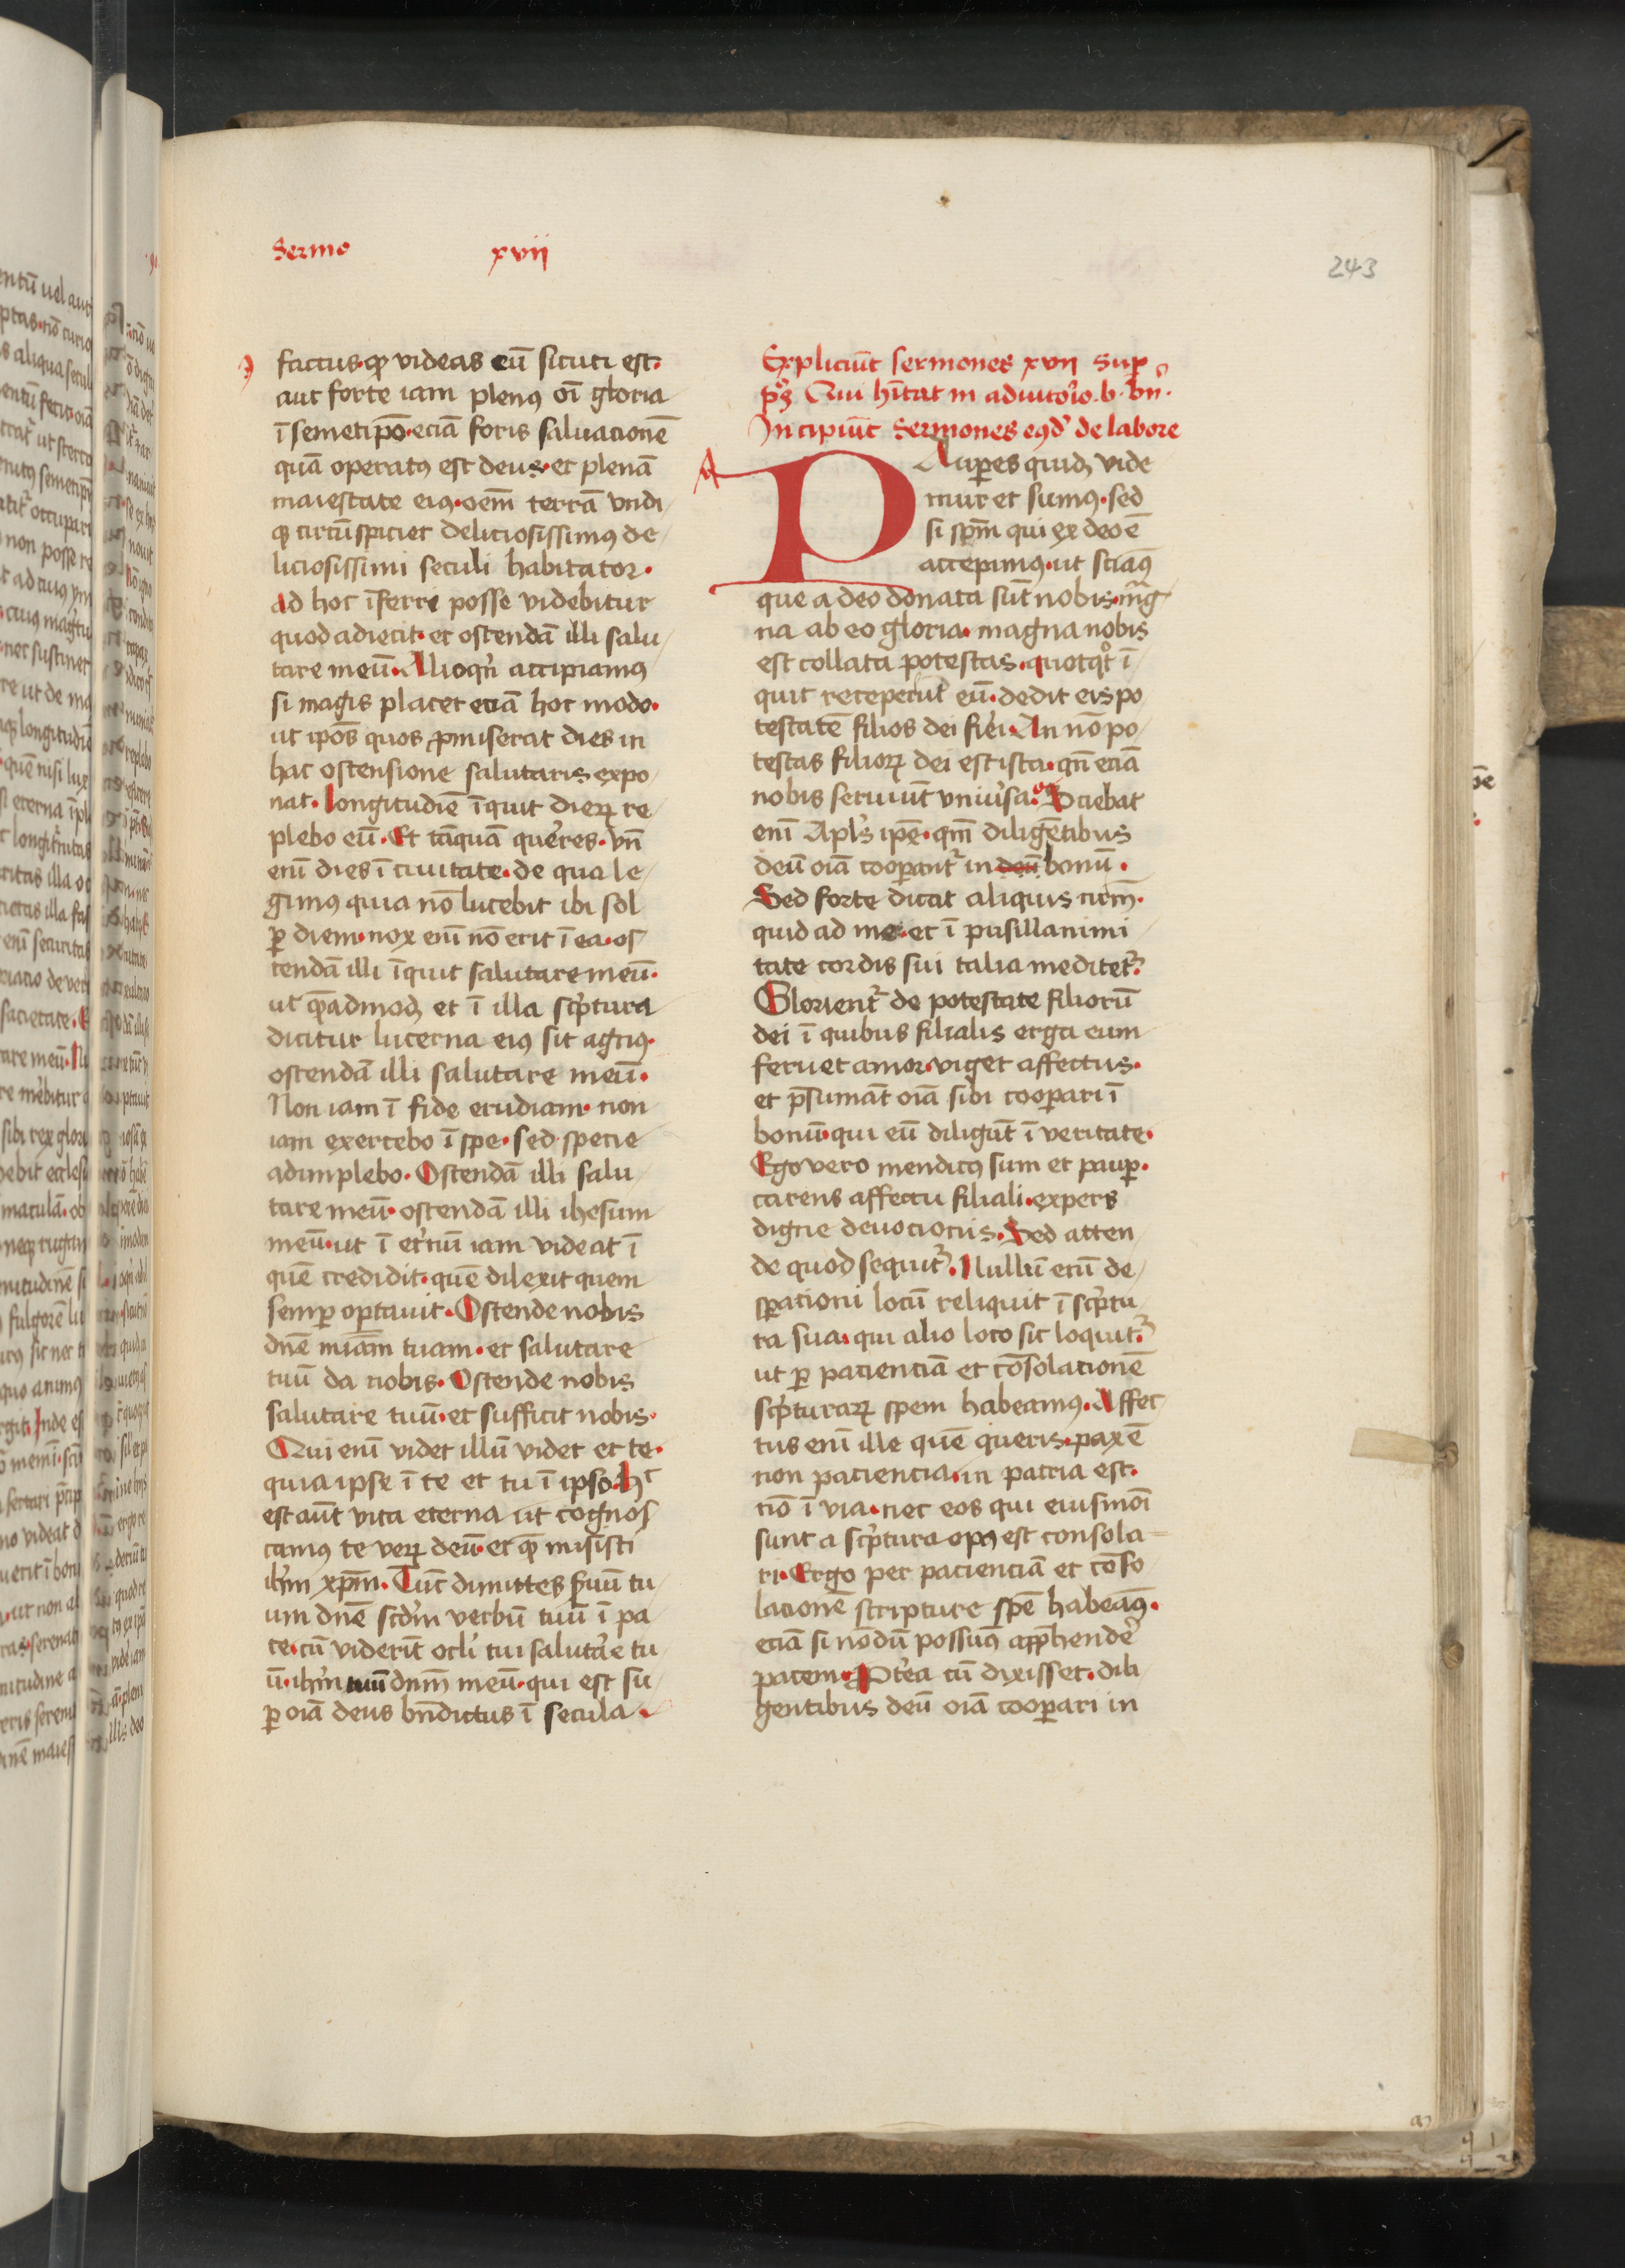 Sermo xvii
243
factus·qꝫ videas eū sicuti est·
aut forte iam plenꝰ oī gloria
ī semetip̄o·eciā foris saluacionē
quā operatꝰ est deus·et plenā
maiestate eiꝰ·oēm terrā vndi
qꝫ circūspiciet deliciosissimꝰ de
liciosissimi seculi habitator·
ad hoc īferre posse videbitur
quod adiecit·et ostendā illi salu
tare meū·Alioqn̄ accipiamꝰ
si magis placet eciā hoc modo·
ut ip̄os quos ꝓmiserat dies in
hac ostensione salutaris expo
nat·longitudīē īquit dierꝝ re
plebo eū·Et tāquā quereres·vn̄
enī dies ī ciuitate·de qua le
gimꝰ quia nō lucebit ibi sol
ꝑ diem·nox enī nō erit ī ea·os
tendā illi īquit salutare meū·
ut qͤadmodꝫ et ī illa sc̄ptura
dicitur lucerna eiꝰ sit agnꝰ·
ostendā illi salutare meū·
Non iam ī fide erudiam·non
iam exercebo ī spe·sed specie
adimplebo·Ostendā illi salu
tare meū·ostendā illi ihesum
meū·ut ī et̓nū iam videat ī
quē credidit·quē dilexit quem
semꝑ optauit·Ostende nobis
dn̄e miām tuam·et salutare
tuū da nobis·Ostende nobis
salutare tuū·et sufficit nobis·
Qui enī videt illū videt et te·
quia ipse ī te et tu ī ipso·h̄
est aūt vita eterna ut cognos
camꝰ te verꝝ deū·et qͤ misisti
ih̄m xp̄m·Tūc dimittes ẜuū tu
um dn̄e scd̓m verbū tuū ī pa
ce·cū viderīt ocl̓i tui salutar̓e tu
ū·ih̄m tuū dn̄m meū·qui est su
ꝑ oīā deus bn̄dictus ī secula·
Expliciūt sermones xvii Suꝑ
pˢ̄ Qui h̄itat in adiuto̓io·b·bn̄·
Incipiūt Sermones eꝰd̓ de labore
PAuꝑes quidꝫ vide
mur et sumꝰ·sed
si sp̄m qui ex deo ē
accepimꝰ·ut sciāꝰ
que a deo donata sūt nobis·mag
na ab eo gloria·magna nobis
est collata potestas·quotqͦt ī
quit receperūt eū·dedit eis po
testatē filios dei fi̓ei·An nō po
testas filiorꝝ dei est ista·qn̄ eciā
nobis seruiūt vniu̓sa·Sciebat
enī Apl̓s ip̄e·qm̄ diligētibus
deū oīā cooꝑant᷑ in deū bonū·
Sed forte dicat aliquis nr̄m·
quid ad me·et ī pusillanimi
tate cordis sui talia meditet᷑·
Glorient᷑ de potestate filiorū
dei ī quibus filialis erga eum
feruet amor·viget affectus·
et p̄sumāt oīā sibi cooꝑari ī
bonū·qui eū diligūt ī veritate·
Ego vero mendicꝰ sum et pauꝑ·
carens affectu filiali·expers
digne deuocionis·Sed atten
de quod sequit᷑·Nullū enī de
sꝑationi locū reliquit ī sc̄ptu
ra sua·qui alio loco sic loquit᷑·
ut ꝑ pacienciā et cōsolacionē
sc̄pturarꝝ spem habeamꝰ·Affec
tus enī ille quē queris·pax ē
non paciencia·in patria est·
nō ī via·nec eos qui eiusmōi
sunt a sc̄ptura opꝰ est consola
ri·Ergo per pacienciā et cōso
lacionē scripture spē habeāꝰ·
eciā si nōdū possumꝰ app̄hender̓
pacem·Pt̓ea cū dixisset·dili
gentibus deū oīā cooꝑari in